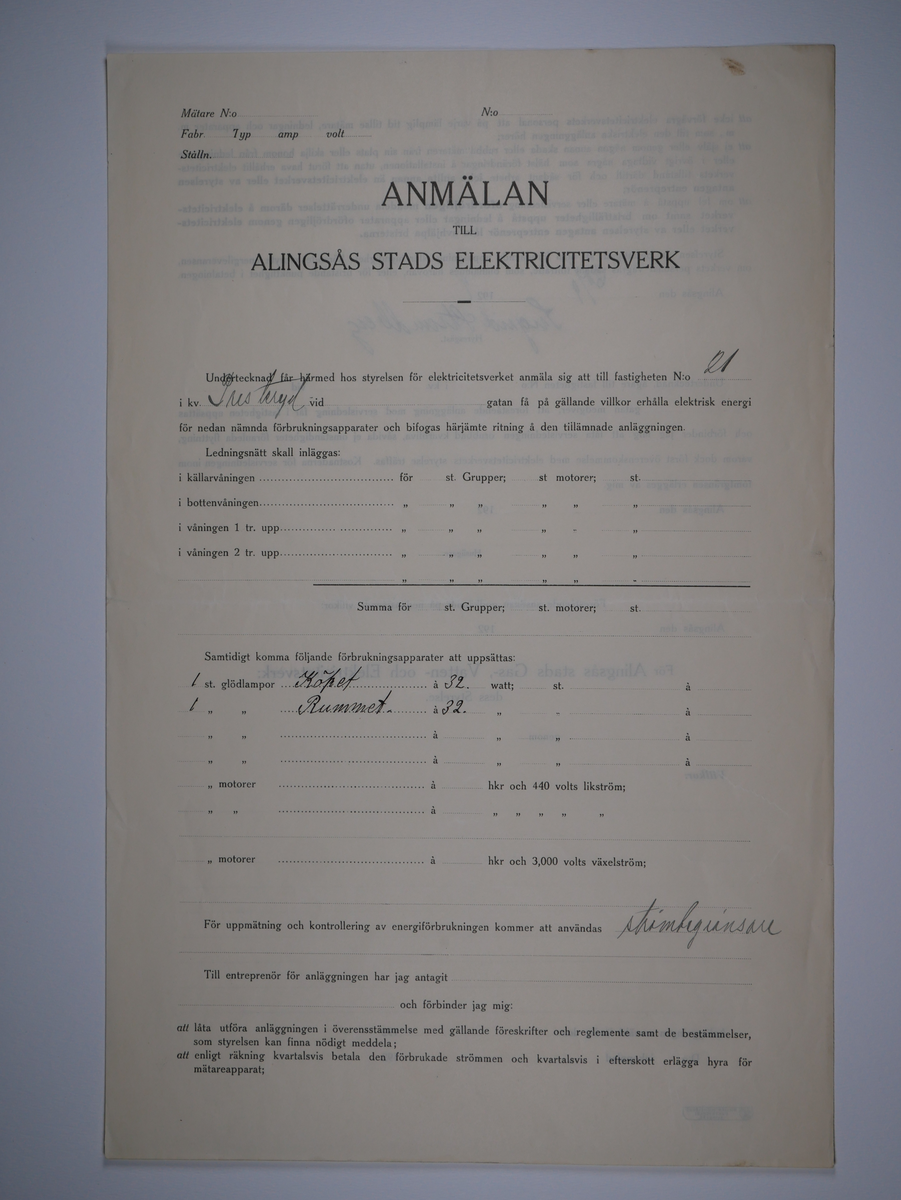 Mätare N:o N:o
Fabr. Typ amp volt
Ställn.
ANMÄLAN
TILL
ALINGSÅS STADS ELEKTRICITETSVERK
Undertecknad får härmed hos styrelsen för elektricitetsverket anmäla sig att till fastigheten N:o 21
i kv. vid gatan få på gällande villkor erhålla elektrisk energi
för nedan nämnda förbrukningsapparater och bifogas härjämte ritning å den tillämnade anläggningen.
Ledningsnätt skall inläggas:
i källarvåningen för st. Grupper; st motorer; st.
i bottenvåningen „ „ „ „ „ „
i våningen 1 tr. upp „ „ „ „ „ „
i våningen 2 tr. upp „ „ „ „ „ „
„ „ „ „ „ „
Summa för st. Grupper; st. motorer; st.
Samtidigt komma följande förbrukningsapparater att uppsättas:
1 st. glödlampor Köket å 32. watt; st. å
1 „ „ Rummet. å 32. „ „ å
„ „ å „ „ å
„ „ å „ „ å
„ motorer å hkr och 440 volts likström;
„ „ å „ „ „ „ „
„ motorer å hkr och 3,000 volts växelström;
För uppmätning och kontrollering av energiförbrukningen kommer att användas strömbegränsare
Till entreprenör för anläggningen har jag antagit
och förbinder jag mig:
att låta utföra anläggningen i överensstämmelse med gällande föreskrifter och reglemente samt de bestämmelser,
som styrelsen kan finna nödigt meddela;
att enligt räkning kvartalsvis betala den förbrukade strömmen och kvartalsvis i efterskott erlägga hyra för
mätareapparat;